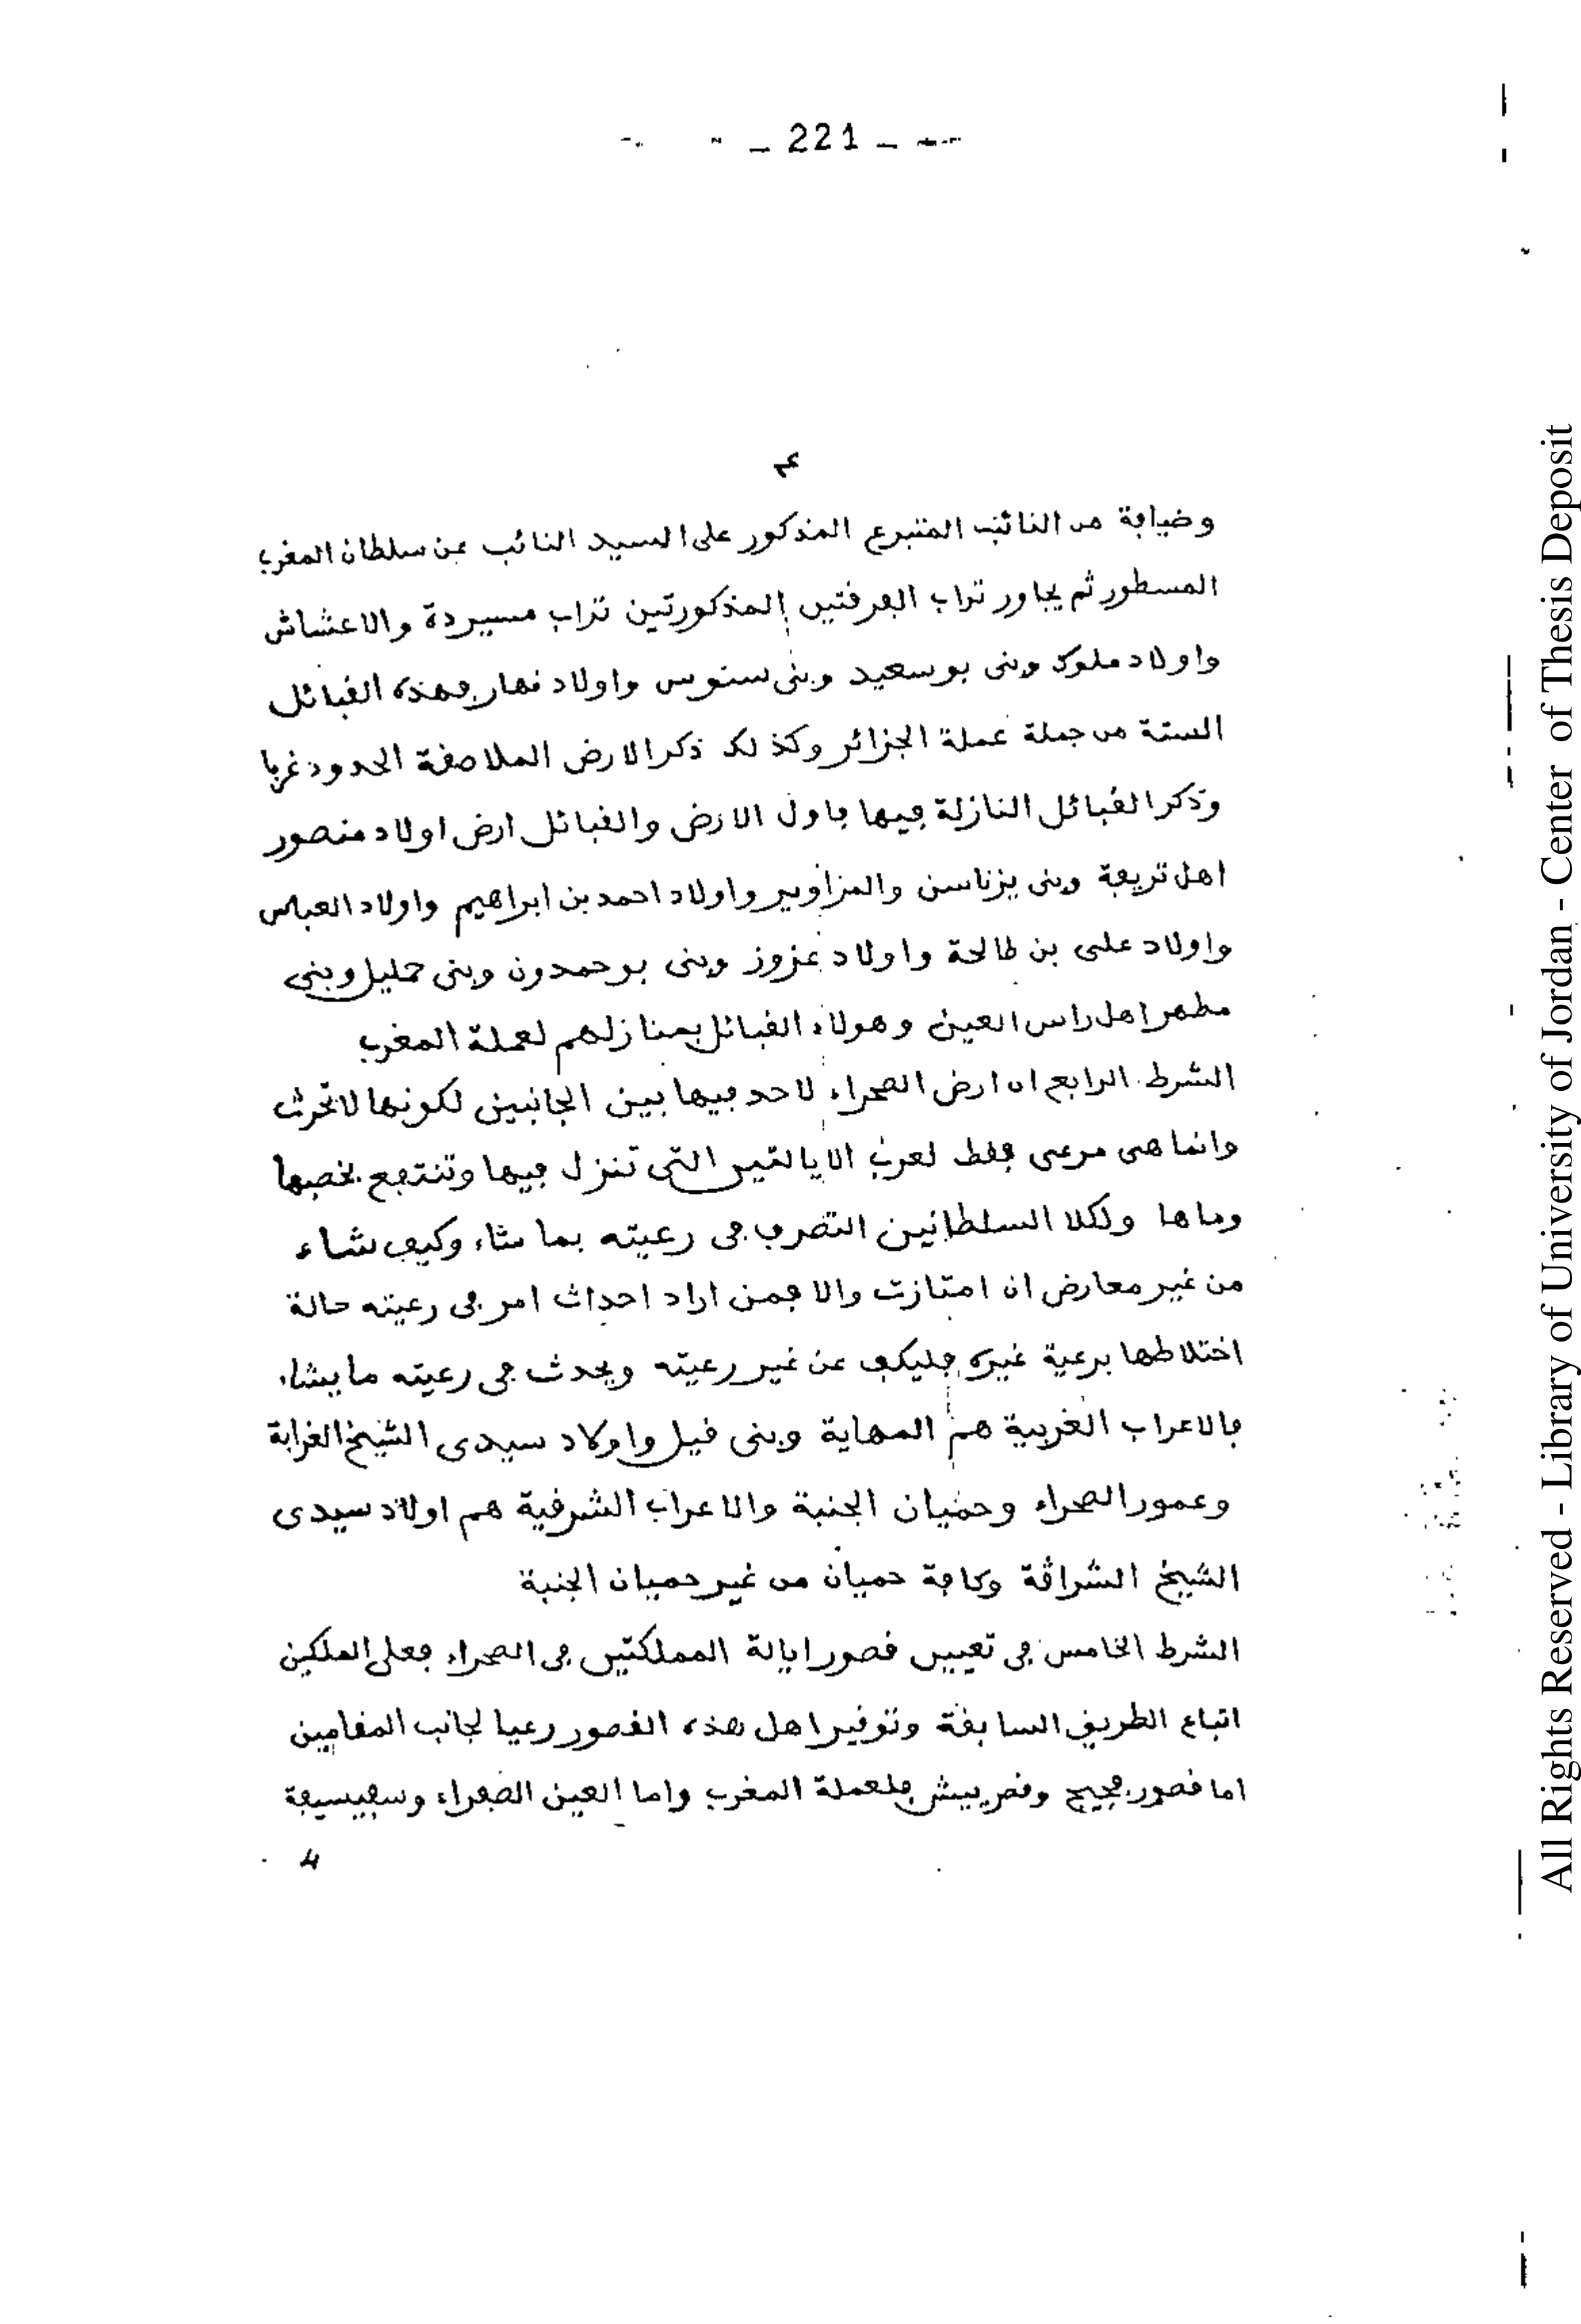 _ 221 _
وضيافة من النائب المتبرع المذكور على السيد النائب عن سلطان المغرب
المسطور ثم يجاور تراب الفرقتين المذكورتين تراب مسيردة والاعشاش
واولاد ملوك وبنى بوسعيد وبنى سنوس واولاد نهار فهذه القبائل
الستة من جملة عملة الجزائر وكذلك ذكر الارض الملاصقة الحدود غربا
وذكر القبائل النازلة فيها فاول الارض والقبائل ارض اولاد منصور
اهل تريفة وبنى يزناسن والمزاوير واولاد احمد بن ابراهيم واولاد العباس
واولاد على بن طالحة واولاد عزوز وبنى بوحمدون وبنى حمليل وبنى
مطهر اهل راس العين وهولاء القبائل بمنازلهم لعملة المغرب
الشرط الرابع ان ارض الصحراء لا حد فيها بين الجانبين لكونها لا تحرث
وانما هى مرعى فقط لعرب الايالتين التى تنزل فيها وتنتفع بخصبها
وماها ولكلا السلطانين التصرف فى رعيته بما شاء وكيف شاء
من غير معارض ان امتازت والا فمن اراد احداث امر فى رعيته حالة
اختلاطها برعية غيره فليكف عن غير رعيته ويحدث فى رعيته ما يشاء
فالاعراب الغربية هم المهاية وبنى قيل واولاد سيدى الشيخ الغرابة
وعمور الصحراء وحميان الجنبة والاعراب الشرقية هم اولاد سيدى
الشيخ الشراقة وكافة حميان من غير حميان الجنبة
الشرط الخامس فى تعيين قصور ايالة المملكتين فى الصحراء فعلى الملكين
اتباع الطريق السابقة وتوقير اهل هذه القصور رعيا لجانب المقامين
اما قصور فجيج وقصر ييش فلعملة المغرب واما العين الصفراء وسفيسيفة
All Rights Reserved - Library of University of Jordan - Center of Thesis Deposit